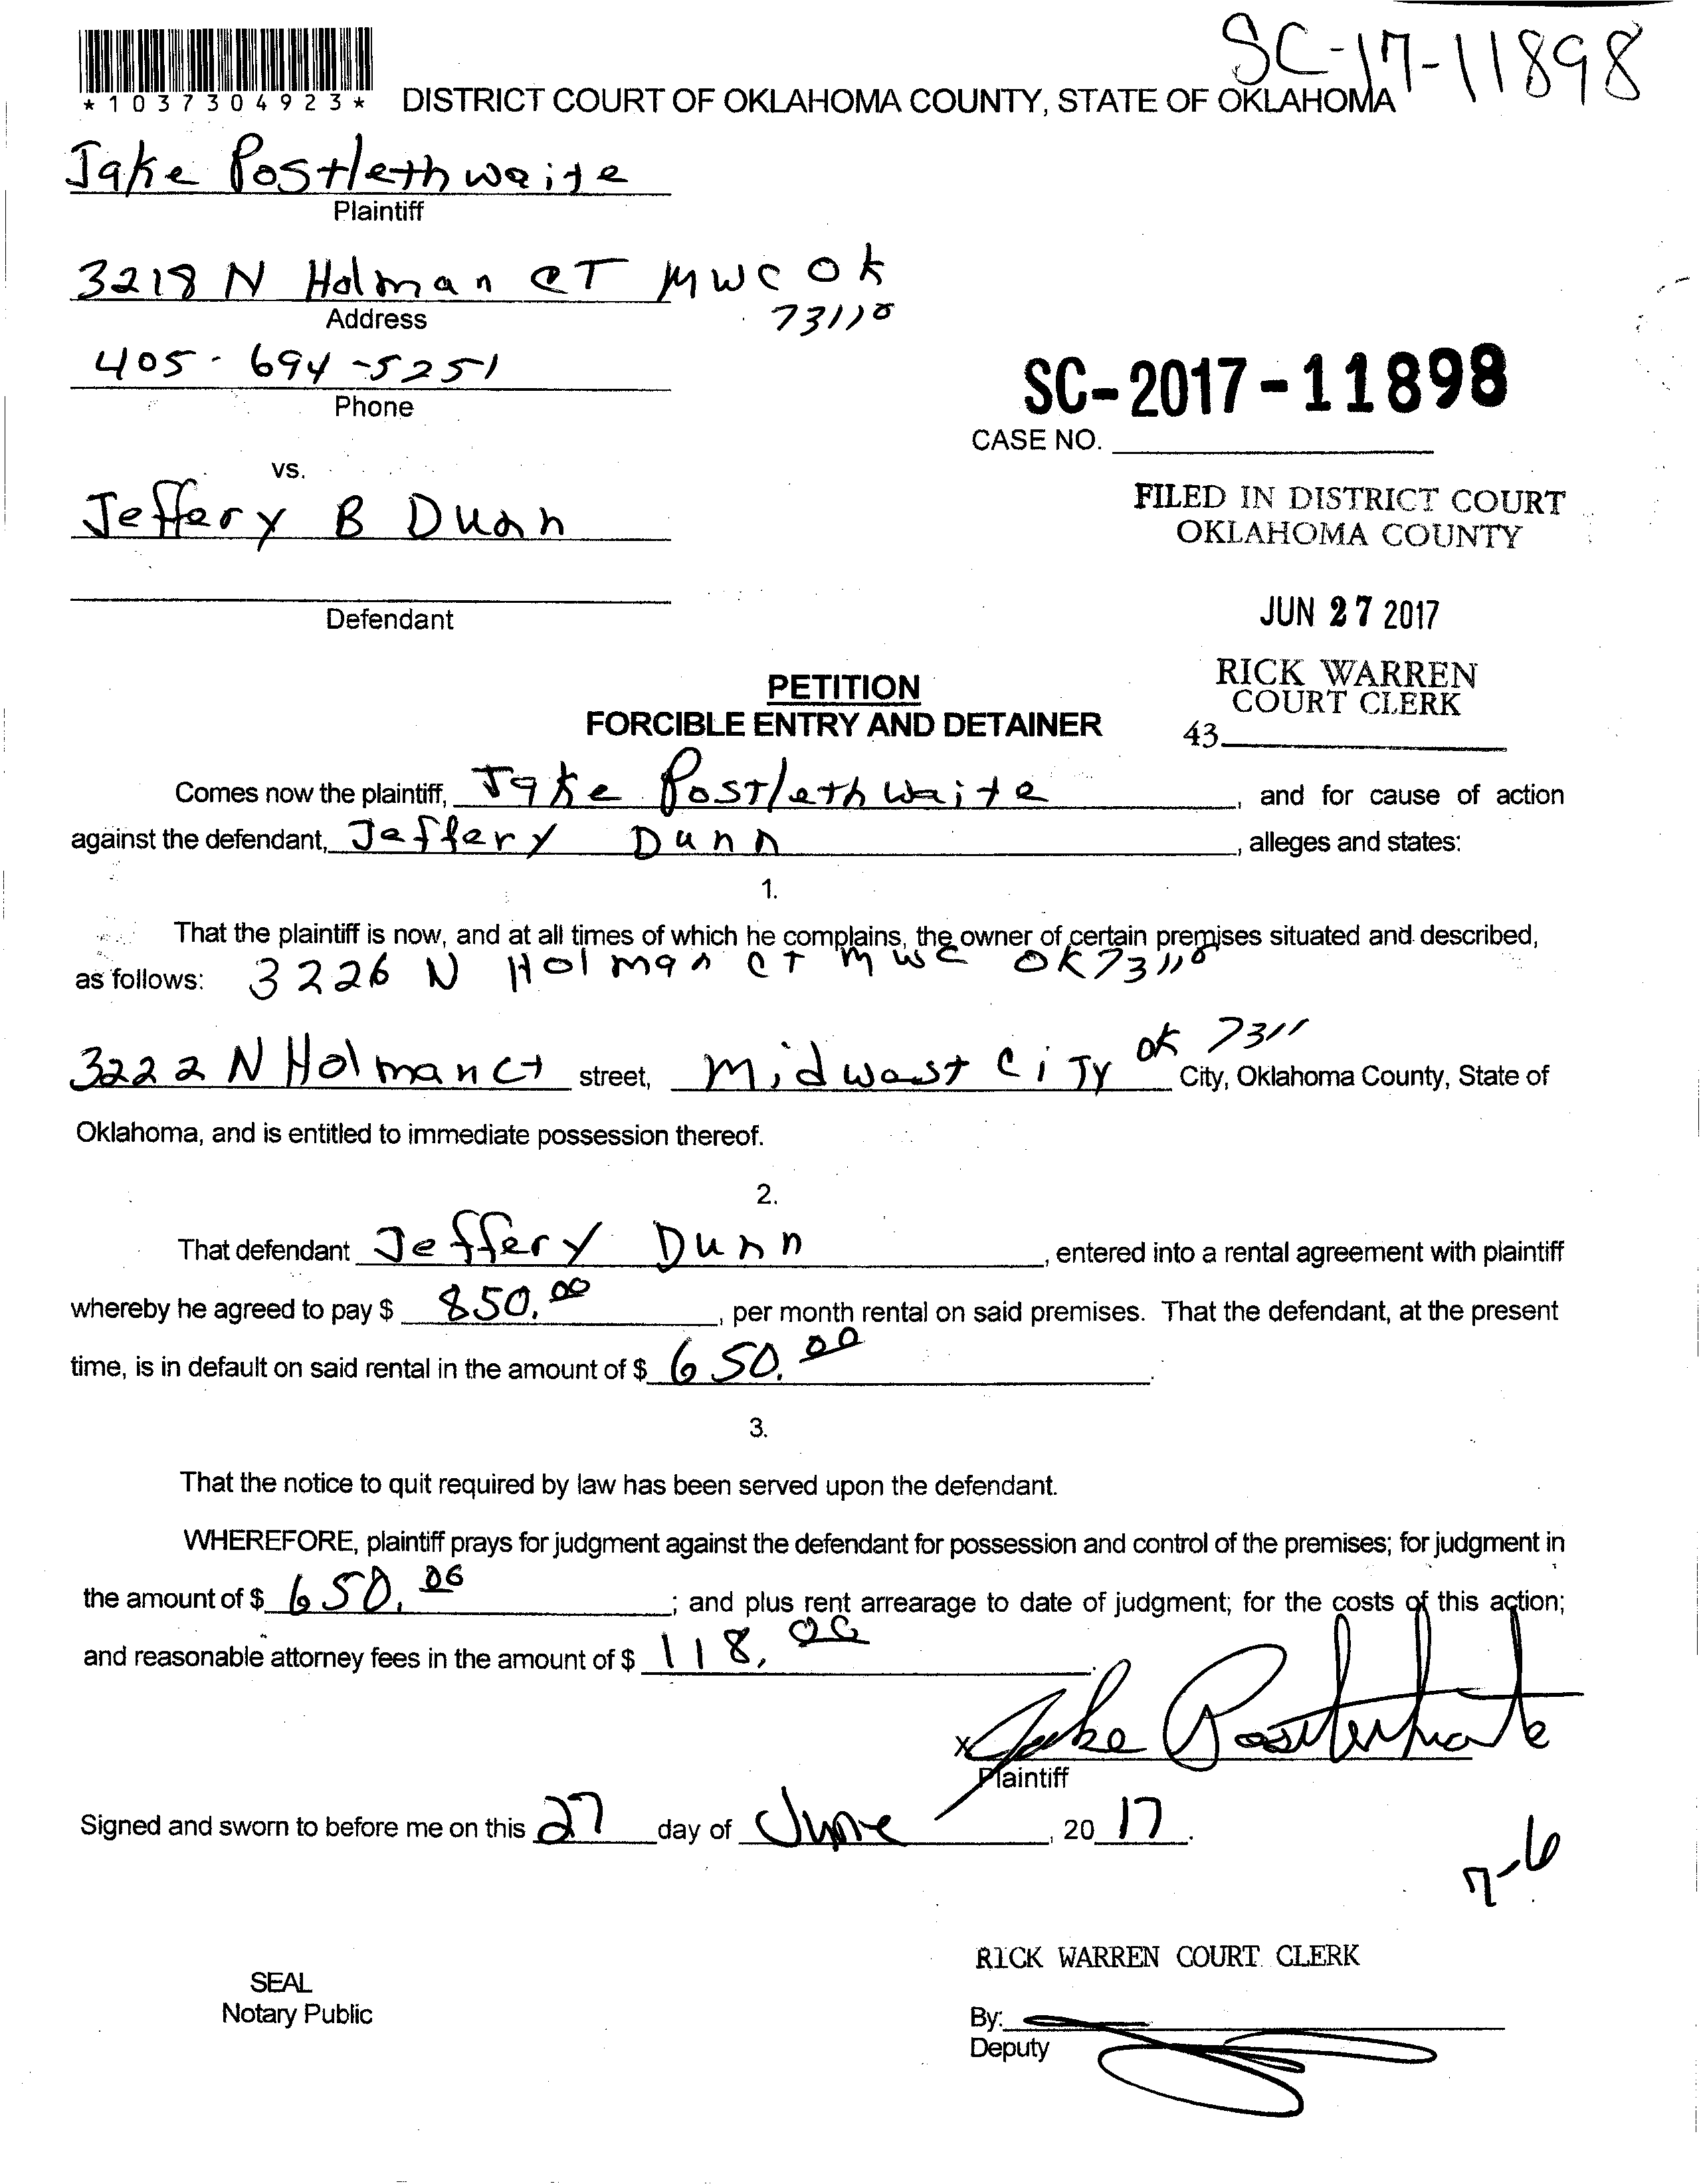 SC-17-11898
*1037304923*
DISTRICT COURT OF OKLAHOMA COUNTY, STATE OF OKLAHOMA
Jake Postlethwaite
Plaintiff
3218 N Holman CT MWC OK
73110
Address
405-694-5251
Phone
SC-2017-11898
CASE NO.
vs.
Jeffery B Dunn
FILED IN DISTRICT COURT
OKLAHOMA COUNTY
Defendant
JUN 27 2017
RICK WARREN
COURT CLERK
43
PETITION
FORCIBLE ENTRY AND DETAINER
Comes now the plaintiff, Jake Postlethwaite, and for cause of action
against the defendant, Jeffery Dunn, alleges and states:
1.
That the plaintiff is now, and at all times of which he complains, the owner of certain premises situated and described,
as follows: 3226 N Holman CT MWC OK 73110
3222 N Holman Ct street, Midwest CiTy OK 7311 City, Oklahoma County, State of
Oklahoma, and is entitled to immediate possession thereof.
2.
That defendant Jeffery Dunn, entered into a rental agreement with plaintiff
whereby he agreed to pay $ 850.00, per month rental on said premises. That the defendant, at the present
time, is in default on said rental in the amount of $ 650.00.
3.
That the notice to quit required by law has been served upon the defendant.
WHEREFORE, plaintiff prays for judgment against the defendant for possession and control of the premises; for judgment in
the amount of $ 650.00; and plus rent arrearage to date of judgment; for the costs of this action;
and reasonable attorney fees in the amount of $ 118.00.
x Jake Postlethwaite
Plaintiff
Signed and sworn to before me on this 27 day of June, 20 17.
7-6
RICK WARREN COURT CLERK
SEAL
Notary Public
By:
Deputy